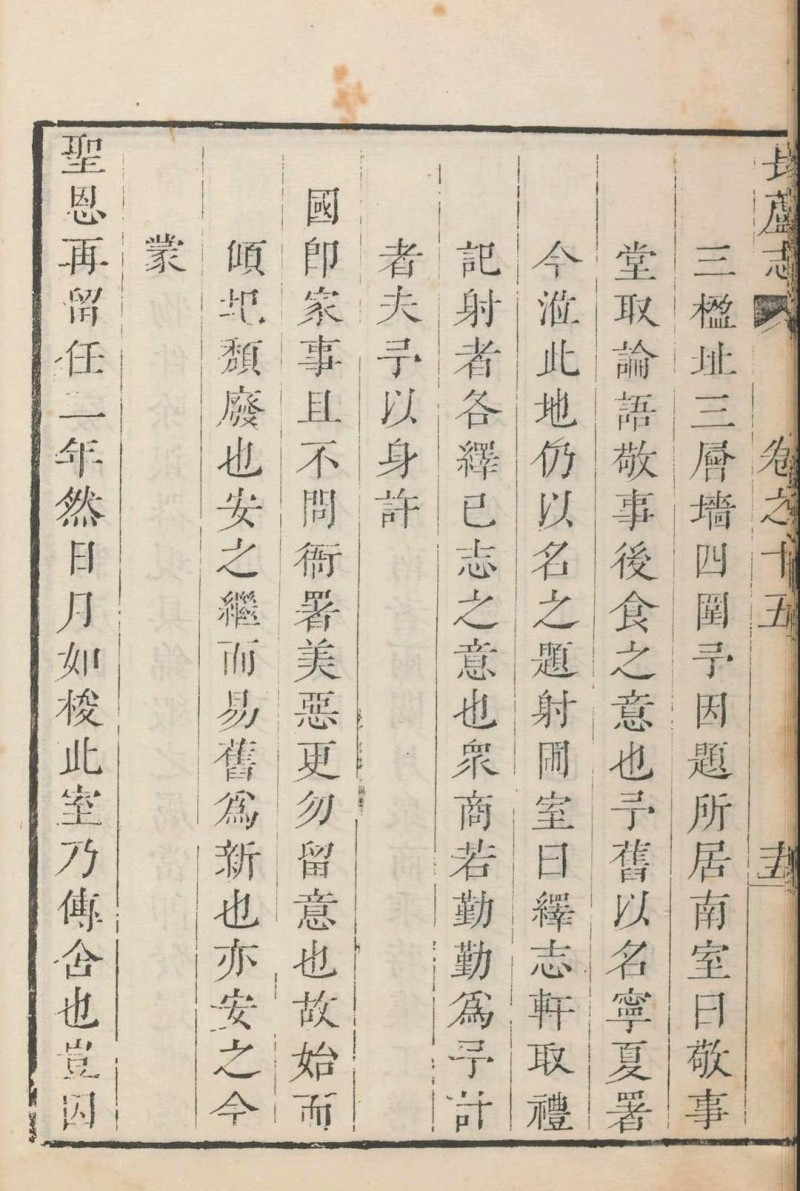 長蘆志 卷之十五 十五
三楹址三層墻四圍予因題所居南室曰敬事
堂取論語敬事後食之意也予舊以名寧夏署
今涖此地仍以名之題射圃室曰繹志軒取禮
記射者各繹己志之意也衆商若勤勤爲予計
者夫予以身許
國卽家事且不問衙署美惡更勿留意也故始而
傾圯頽廢也安之繼而易舊爲新也亦安之今
蒙
聖恩再留任二年然日月如梭此室乃傳舍也豈因